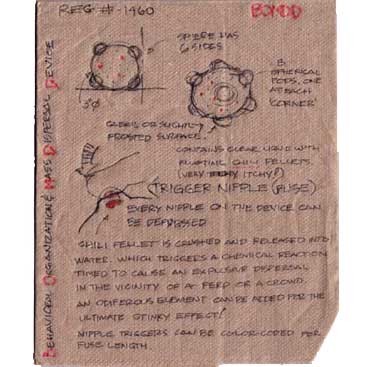 REG #-1460
BOMDD
SPHERE HAS
6 SIDES
3"Ø
8
SPHERICAL
PODS, ONE
AT EACH
'CORNER'
CLEAR OR SLIGHTLY
FROSTED SURFACE.
CONTAINS CLEAR LIQUID WITH
FLOATING CHILI PELLETS.
(VERY ITCHY!)
(TRIGGER NIPPLE (FUSE)
EVERY NIPPLE ON THE DEVICE CAN
BE DEPRESSED
CHILI PELLET IS CRUSHED AND RELEASED INTO
WATER. WHICH TRIGGERS A CHEMICAL REACTION
TIMED TO CAUSE AN EXPLOSIVE DISPERSAL
IN THE VICINITY OF A FEED OR A CROWD.
AN ODIFEROUS ELEMENT CAN BE ADDED FOR THE
ULTIMATE STINKY EFFECT!
NIPPLE TRIGGERS CAN BE COLOR-CODED FOR
FUSE LENGTH.
BEHAVIORAL ORGANIZATION & MASS DISPERSAL DEVICE